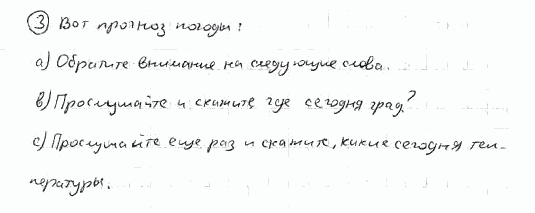 ③ Вот прогноз погоды:
a) Обратите внимание на следующие слова.
b) Прослушайте и скажите где сегодня град?
c) Прослушайте еще раз и скажите, какие сегодня тем-
пературы.